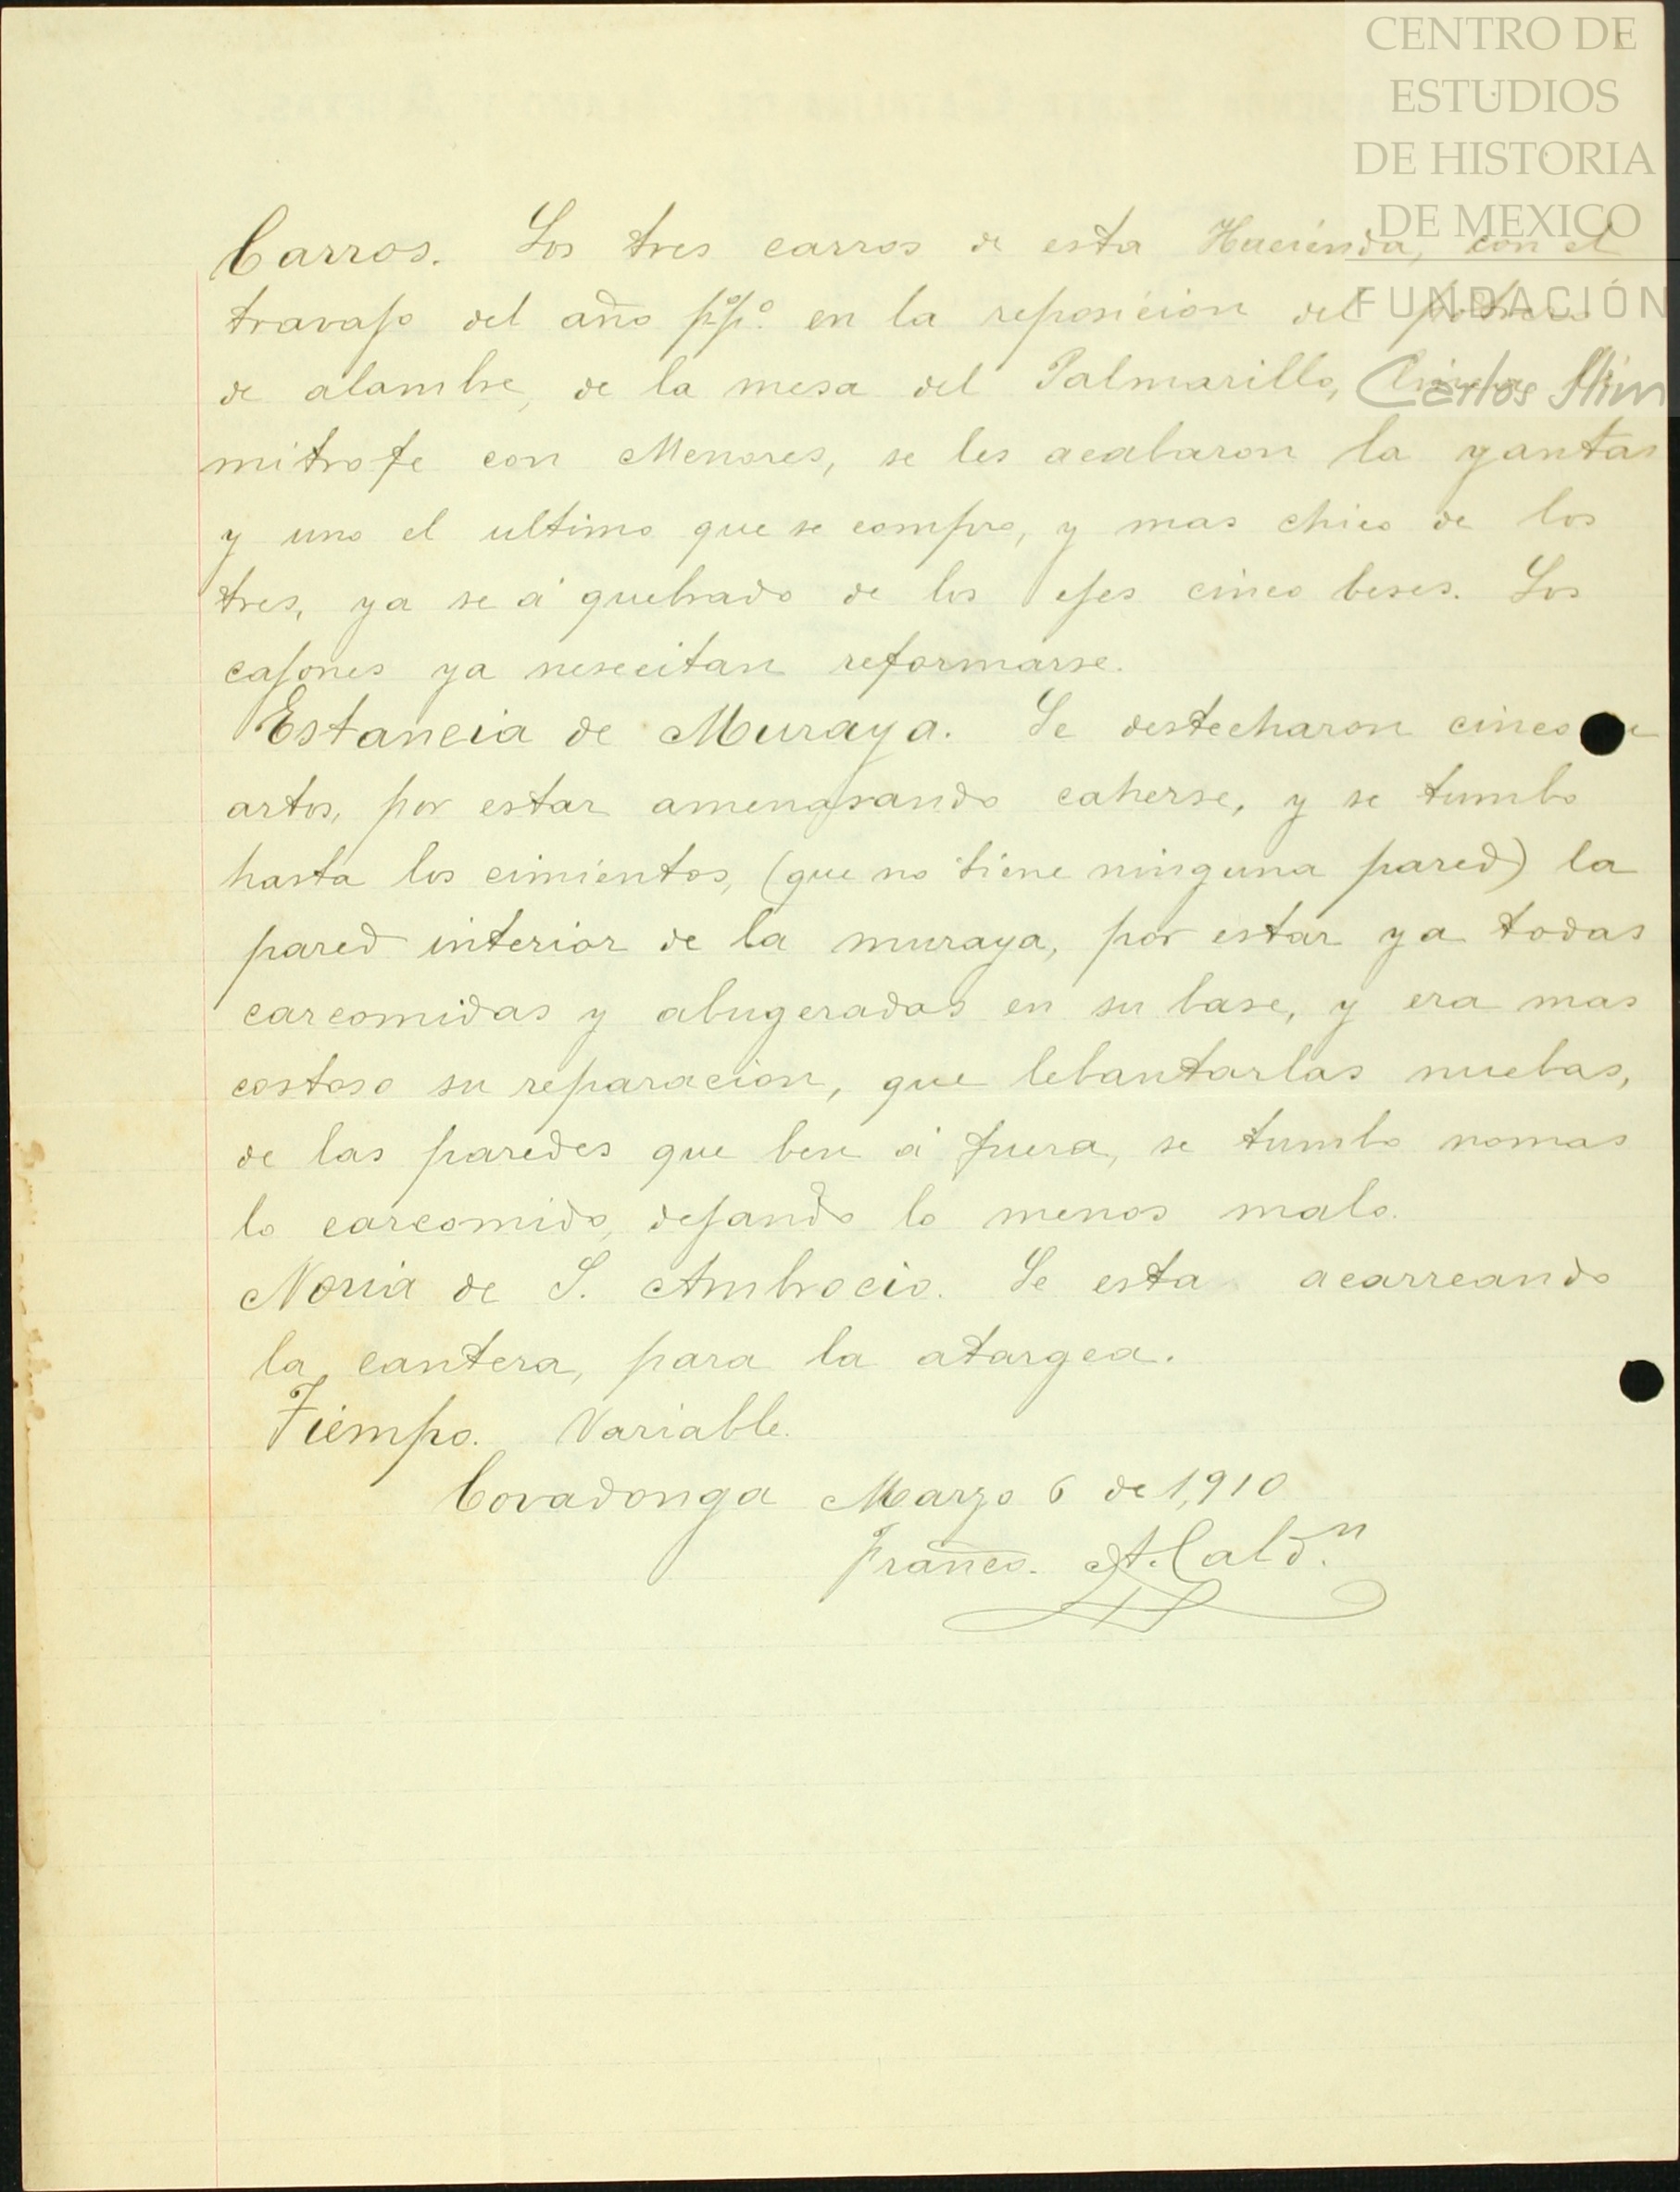 CENTRO DE
ESTUDIOS
DE HISTORIA
DE MEXICO
FUNDACIÓN
Carlos Slim
Carros. Los tres carros de esta Hacienda, con el
travajo del año p.º p.º en la reposicion del potrero
de alambre, de la mesa del Palmarillo,
mitrofe con Menores, se les acabaron la yantas
y uno el ultimo que se compro, y mas chico de los
tres, ya se á quebrado de los ejes cinco beses. Los
cajones ya nesecitan reformarse.
Estancia de Muraya. Se destecharon cinco
artos, por estar amenasando caherse, y se tumbo
hasta los cimientos, (que no tiene ninguna pared) la
pared interior de la muraya, por estar ya todas
carcomidas y abugeradas en su base, y era mas
costoso su reparacion, que lebantarlas nuebas,
de las paredes que ben á fuera, se tumbo nomas
lo carcomido, dejando lo menos malo.
Noria de S. Ambrocio. Se esta acarreando
la cantera, para la atargea.
Tiempo. Variable.
Covadonga Marzo 6 de 1,910
Franco. A. Cald.n